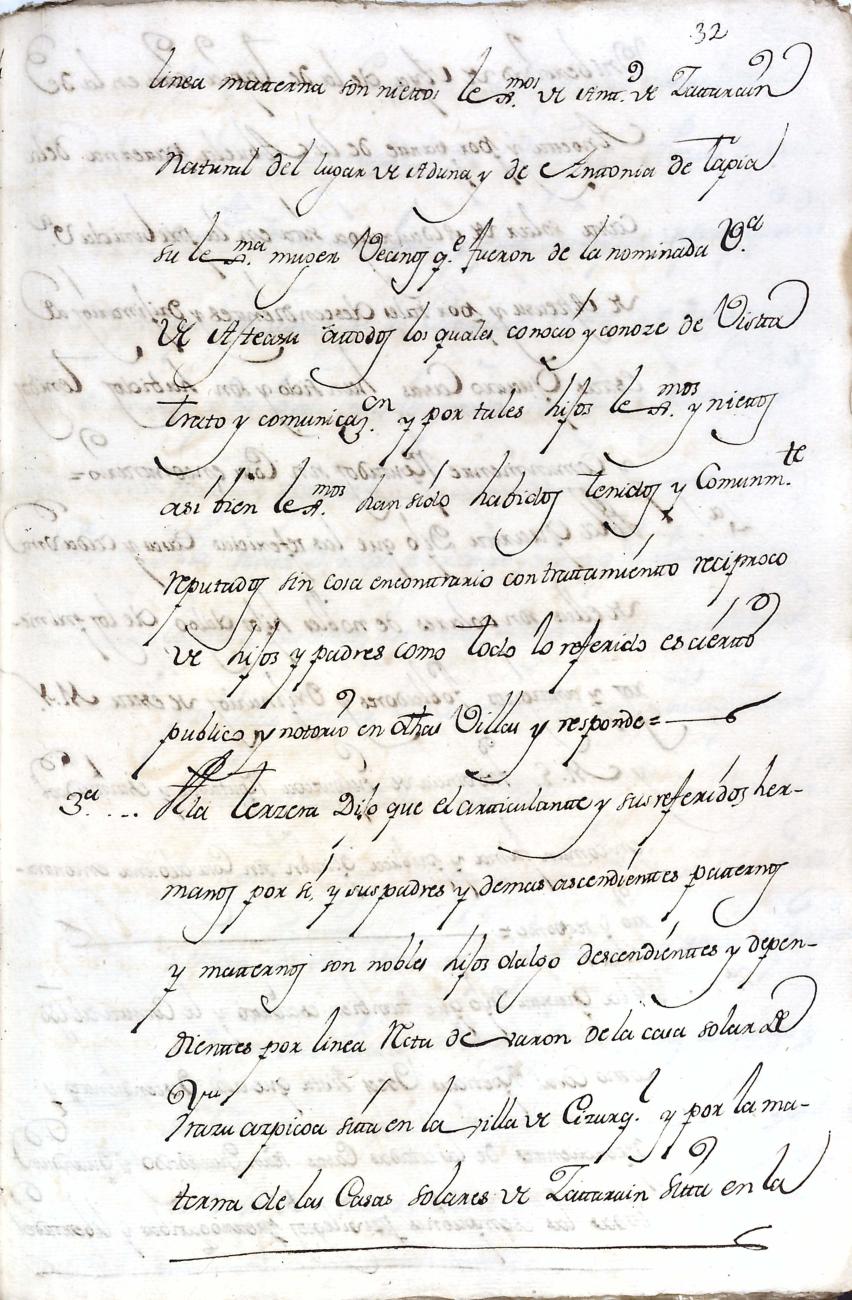 32
linea materna son nietos lexmos de Anto de Zattarain
Natural del lugar de Aduna y de Antonia de Tapia
su lexma muger Vecinos qe fueron de la nominada Va
de Asteasu atodos los quales conocio y conoze de Vistta
trato y comunicazn y por tales hijos lexmos y nietos
asi bien lexmos han sido habidos tenidos y Comunmte
reputados sin cosa encontrario con trattamientto reciproco
de hijos y padres como todo lo referido es ciertto
publico y notorio en dhas Villas y responde=
3a .... A la terzera Dijo que el articulantte y sus referidos her-
manos por si, y sus padres y demas ascendienttes patternos
y matternos son nobles hijos dalgo descendienttes y depen-
dienttes por linea Recta de varon de la casa solar de
Yrazu azpicoa sita en la villa de Cizurql y por la ma-
terna de las Casas solares de Zattarain sitta en la